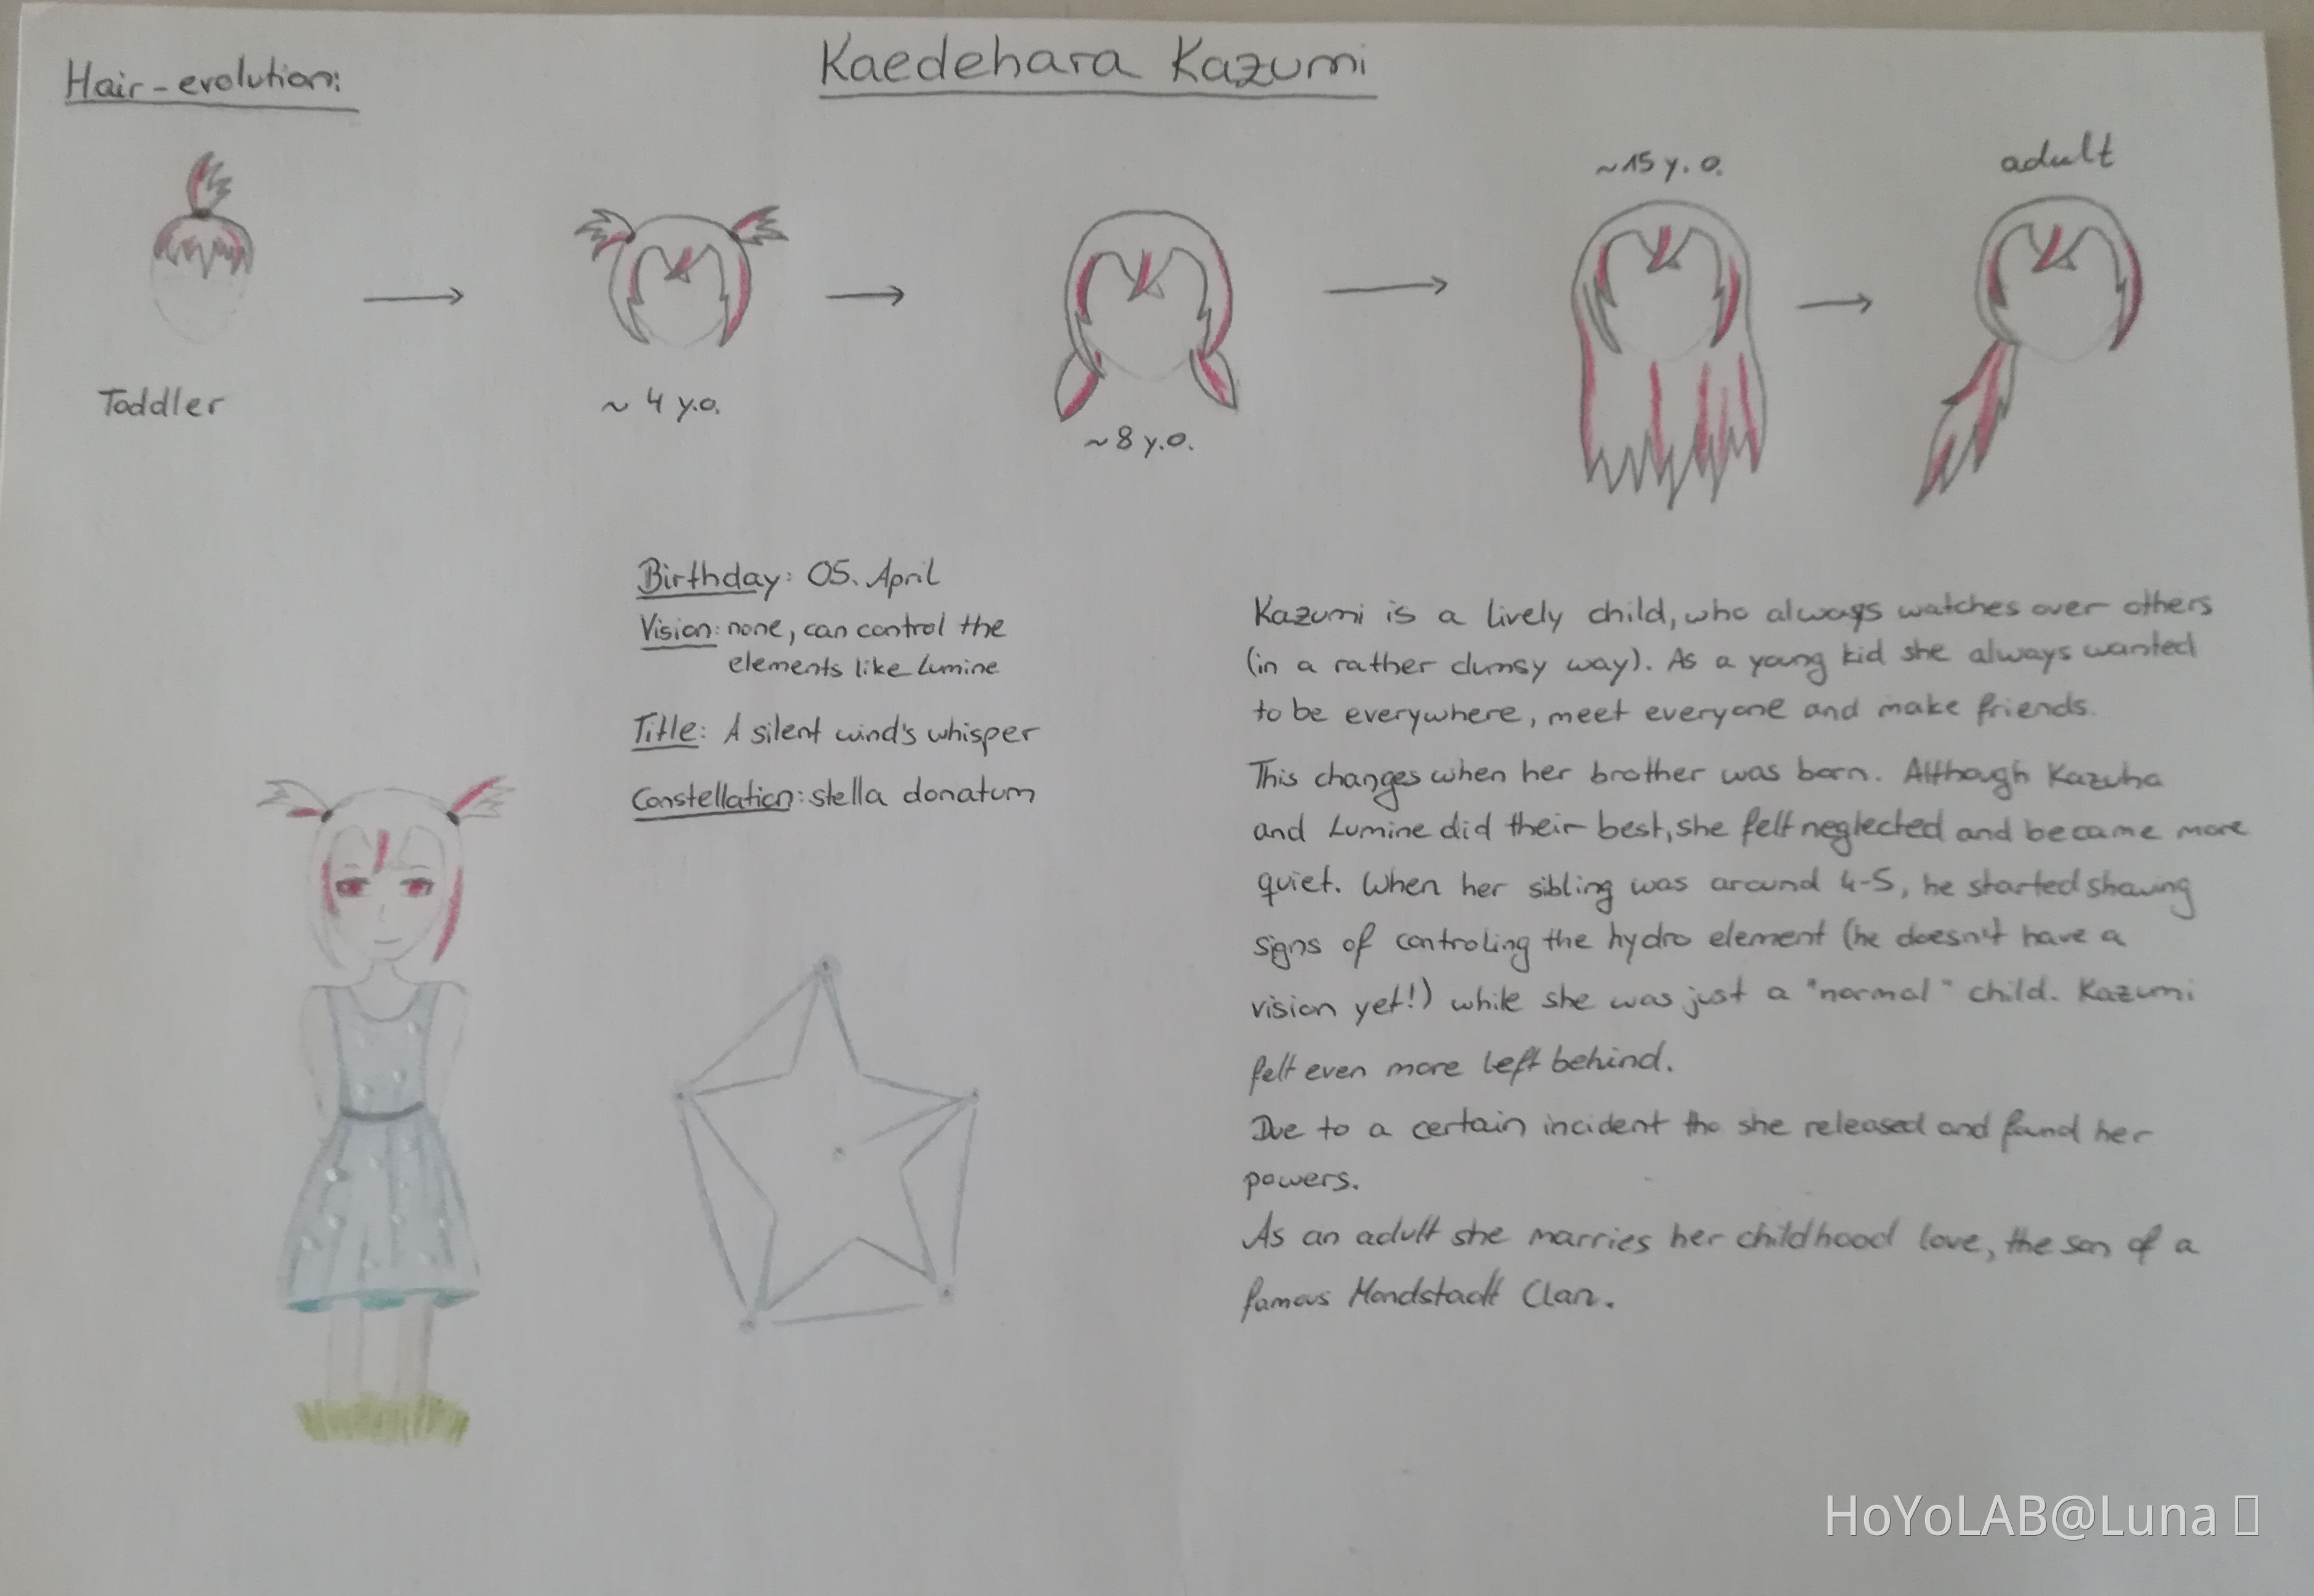 Kaedehara Kazumi
Hair-evolution:
Toddler
~ 4 y.o.
~8 y.o.
~15 y. o.
adult
Birthday: 05. April
Vision: none, can control the
elements like Lumine
Title: A silent wind's whisper
Constellation: stella donatum
Kazumi is a lively child, who always watches over others
(in a rather clumsy way). As a young kid she always wanted
to be everywhere, meet everyone and make friends.
This changes when her brother was born. Although Kazuha
and Lumine did their best, she felt neglected and became more
quiet. When her sibling was around 4-5, he started showing
signs of controling the hydro element (he doesn't have a
vision yet!) while she was just a "normal" child. Kazumi
felt even more left behind.
Due to a certain incident tho she released and found her
powers.
As an adult she marries her childhood love, the son of a
famous Mondstadt Clan.
HoYoLAB@Luna